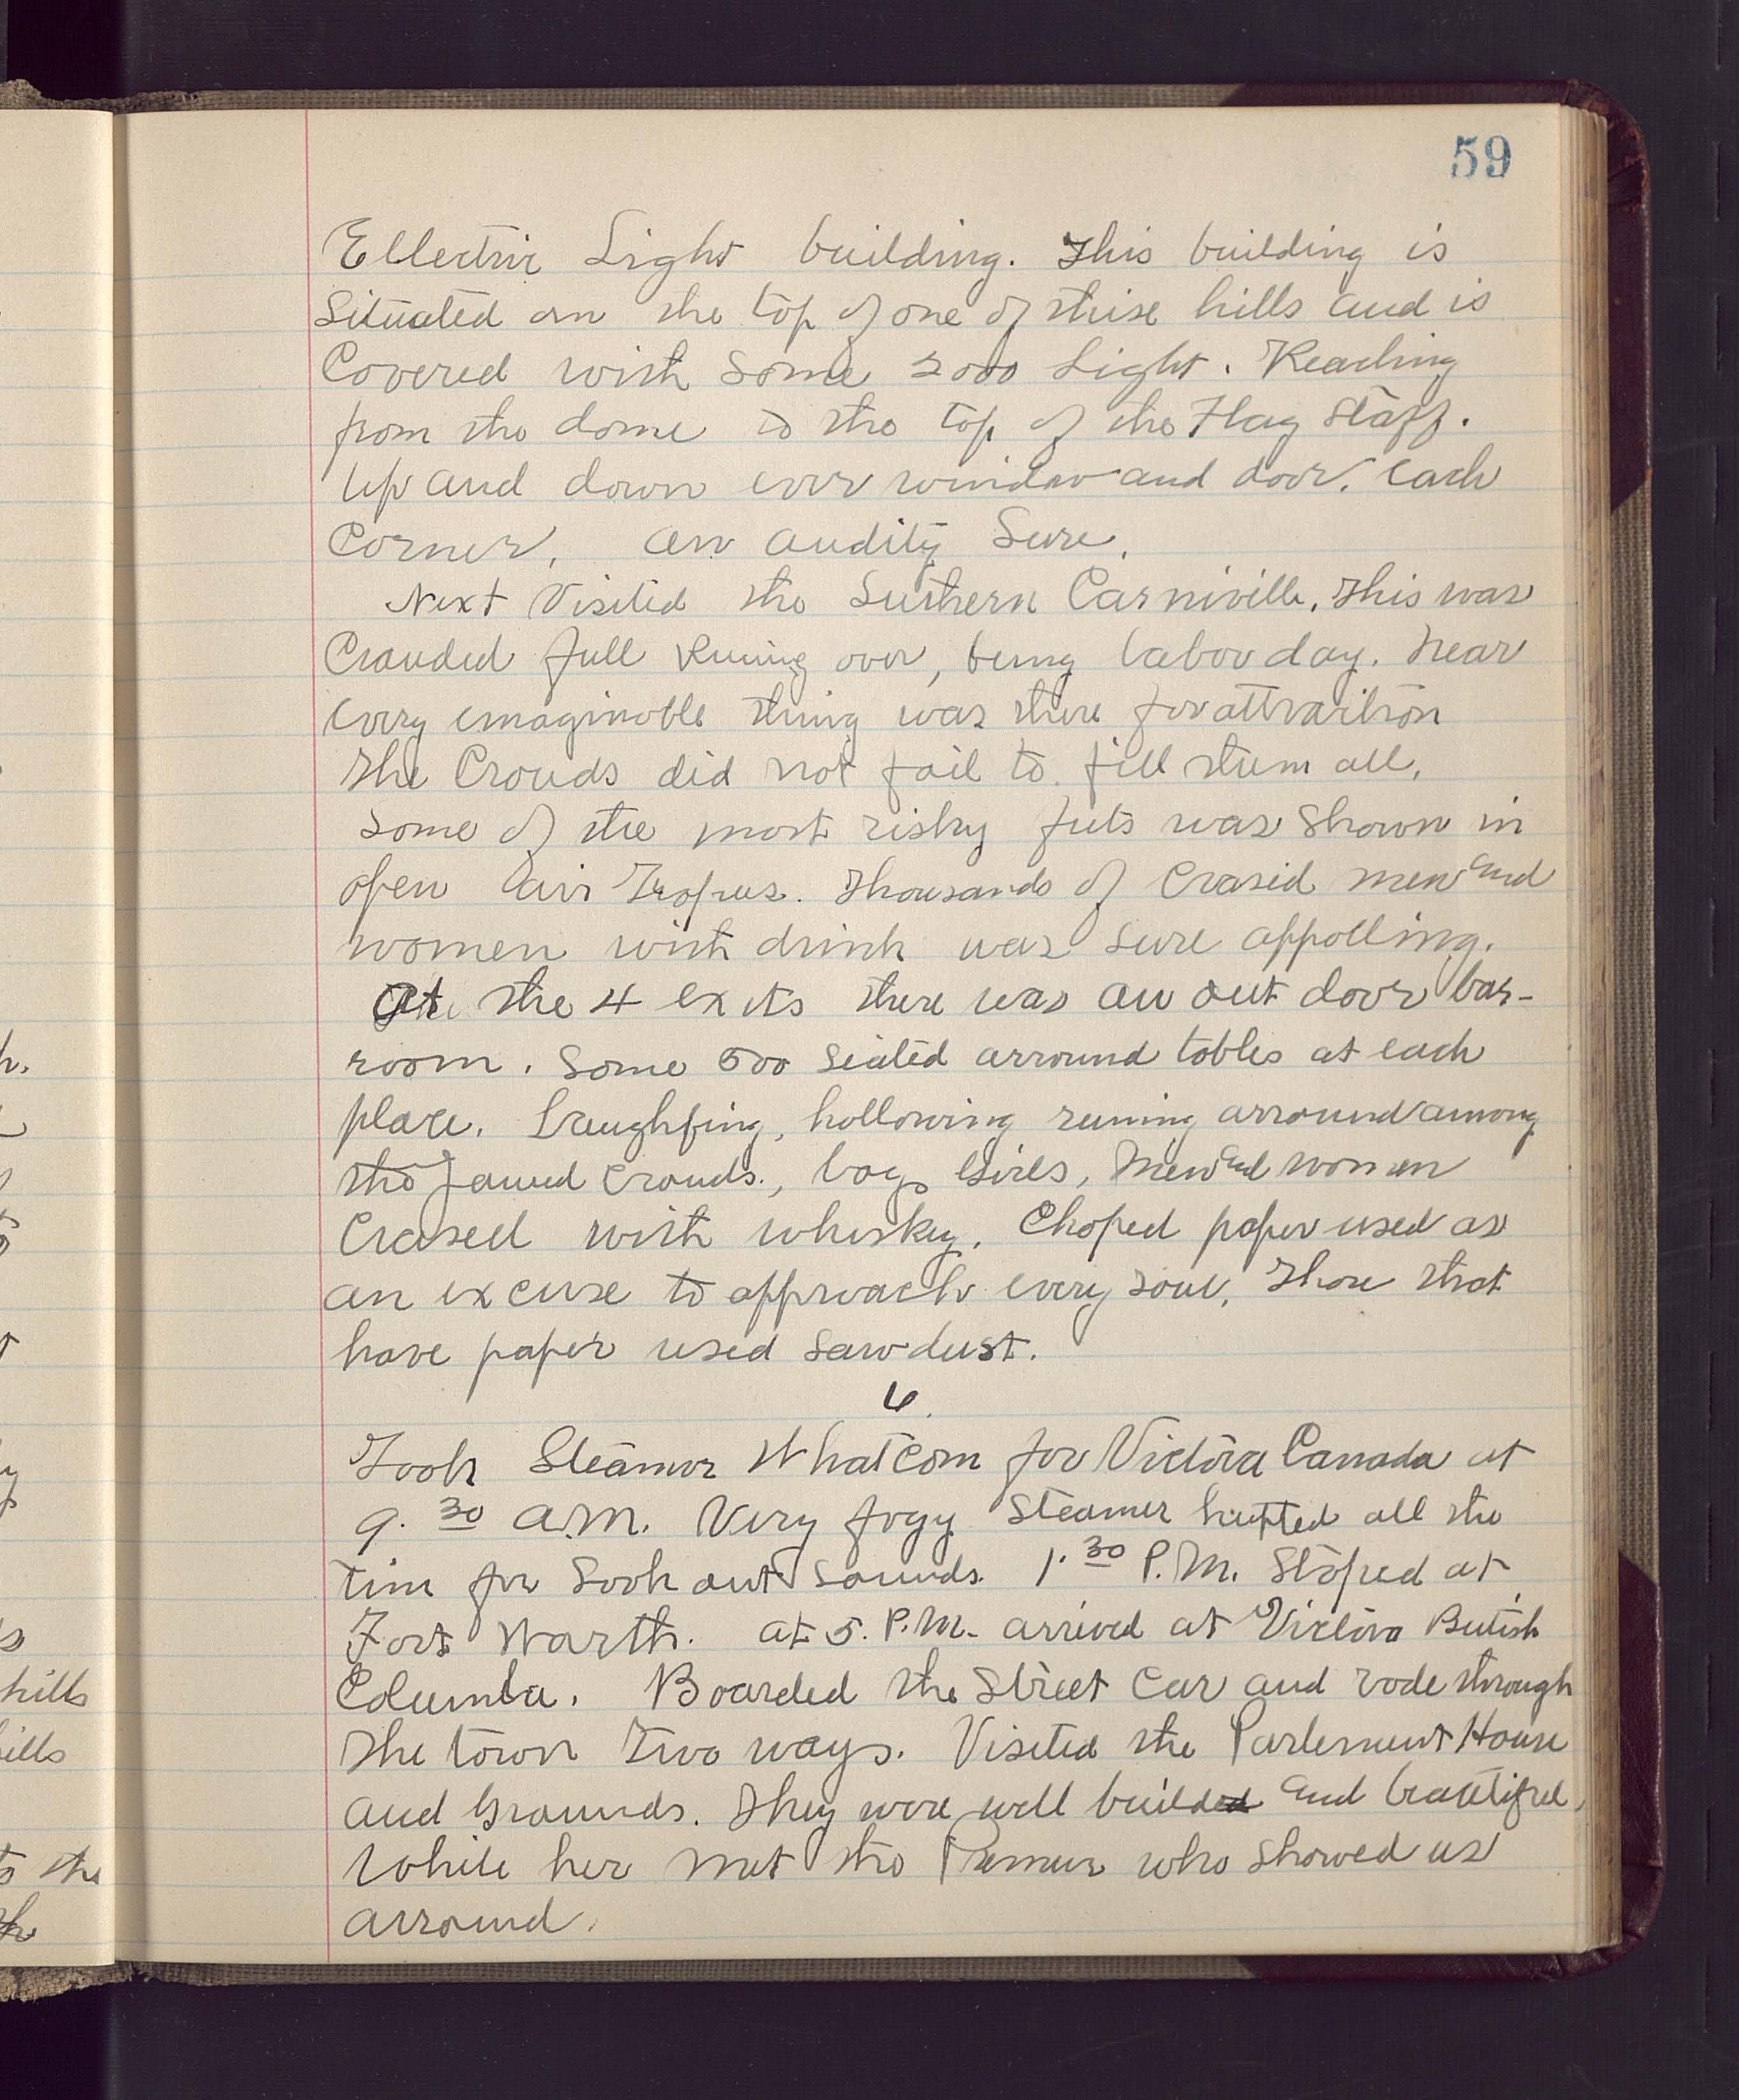 59
Ellectric Light building. This building is
Situated on the top of one of thise hills and is
Covered with some 2000 Light. Reaching
from the dome to the top of the Flag Staff.
Up and down ever window and door. Each
Corner. an audity Sure.
Next Visited the Suthern Carniville. This was
Crauded full runing over, being labor day. Near
every emaginable thing was there for attraction
The Crouds did not fail to fill them all.
Some of the most risky futs was Shown in
open air Tropus. Thousands of Crasid men and
women with drink was sure appolling.
At the 4 exits there was an out door bar-
room. Some 500 Seated arround tables at each
place. Laughfing, hollowing runing arround among
the Jamed Crouds., boys Girls, Men and women
Crased with whisky. Choped paper used as
an excuse to approach every soul, Those that
have paper used Sawdust.
6
Took Steamer Whatcom for Victora Canada at
9.30 a.m. Very fogy Steamer all the
tim for Look out Sounds. 1.30 P.M. Stoped at
Fort Warth. at 5. P.M. arrived at Victora British
Columba. Boarded the Street Car and rode through
The town two ways. Visited the Parlement House
and Grounds. They were well builded and beautiful,
While her met the Premeir who showed us
arround.
h.
hills
hills
to the